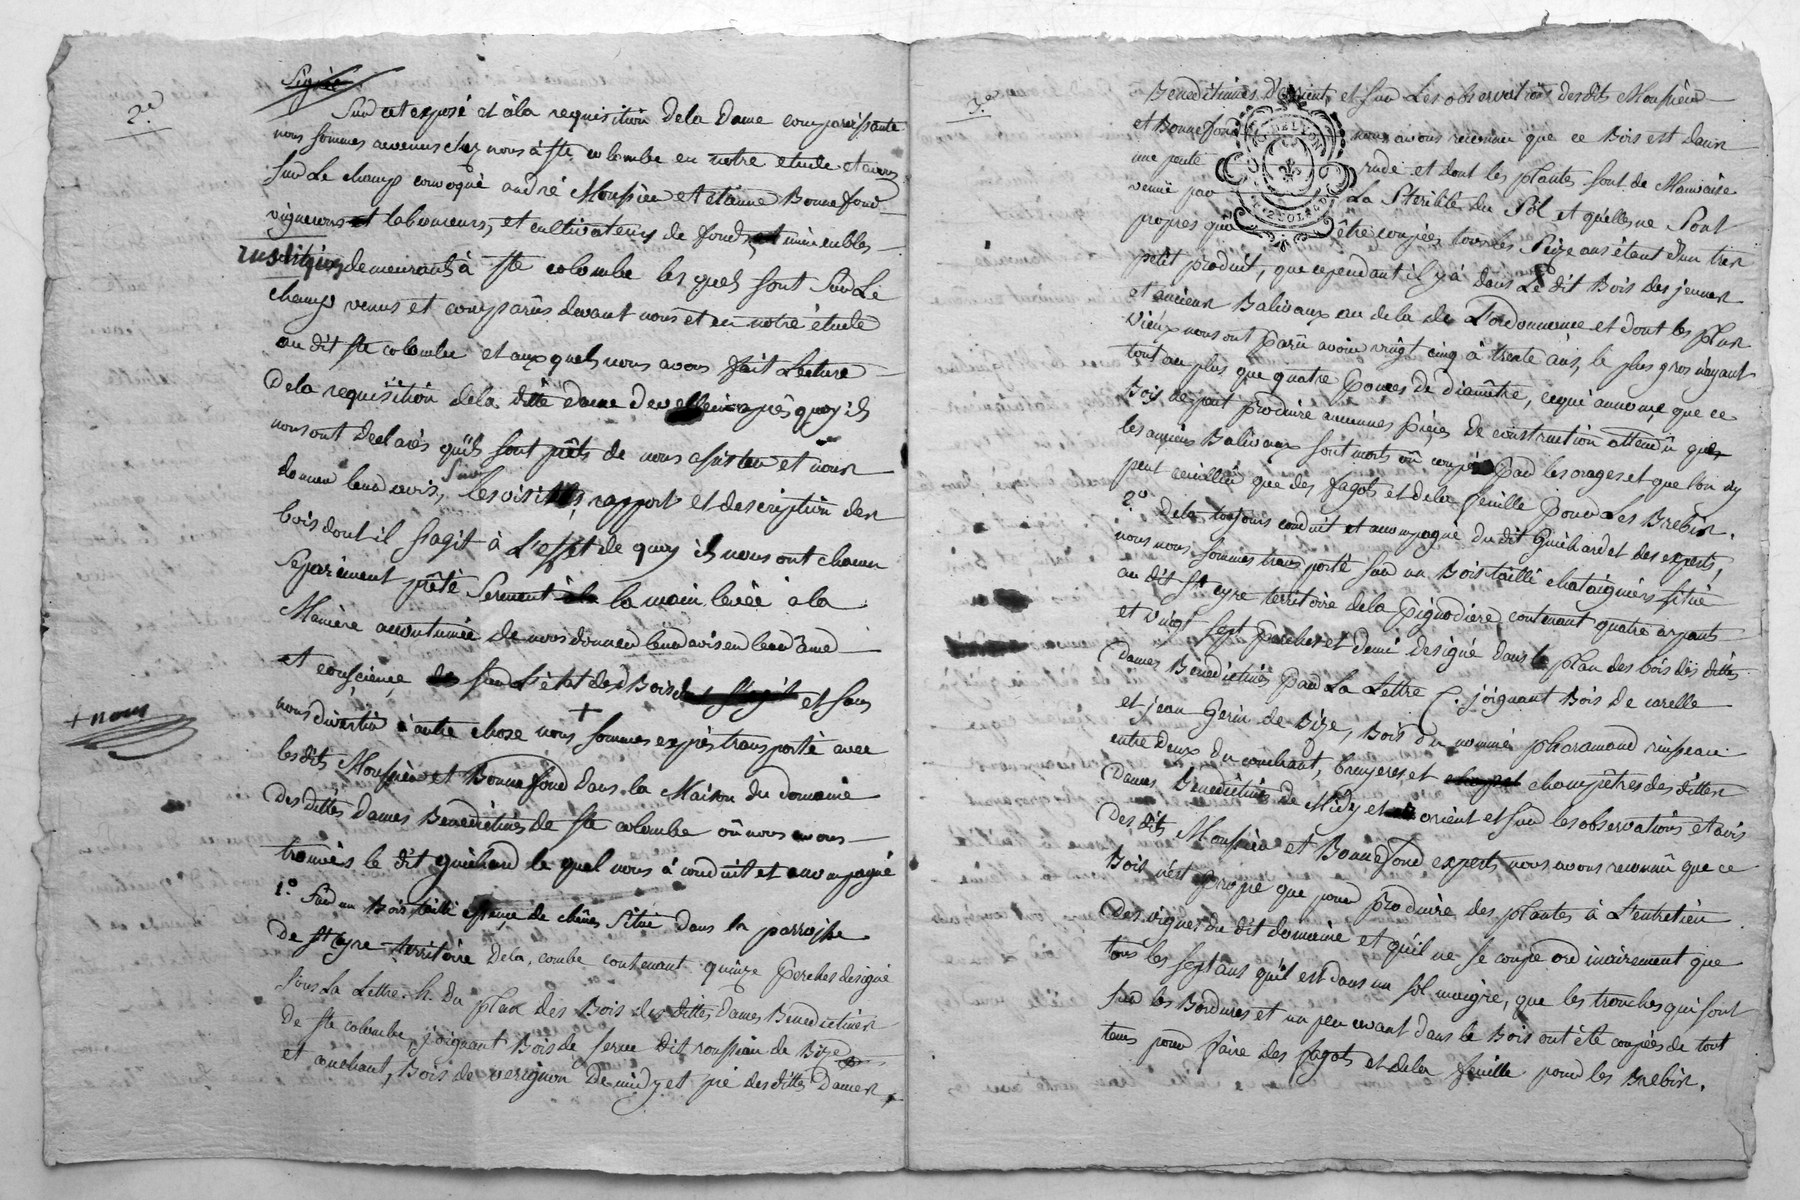 2.e
Signé
Sur cet exposé et à la requisition de la Dame comparaissante
nous sommes revenus chez nous à Ste colombe en notre etude et avons
Sur Le champ convoqué andré Moussier et etienne Bonnefond
vignerons et laboureurs, et cultivateurs de fonds et immeubles
rustiques demeurants à Ste colombe les quels sont Sur Le
champ venus et comparûs devant nous et en notre étude
au dit Ste colombe et aux quels nous avons fait Lecture
De la requisition de la ditte dame après quoy ils
nous ont Declarés qu'ils sont prêts de nous assister et nous
donner leur avis, Sur les visittes, rapport et description des
bois dont il s'agit à L'effet de quoy ils nous ont chacun
Separément prêté Serment la main levée à la
Maniere accoutumée de nous donner leur avis en leur âme
et conscience Sur L'état des Bois et sans
+ nous
nous divertir à autre chose nous + sommes exprès transporté avec
lesdits Moussier et Bonnefond dans la Maison du domaine
Des dittes Dames Benedictines de Ste colombe où nous avons
trouvés le dit guichard le quel nous à conduit et accompagné
1.° Sur un Bois taillé essence de chênes Situé dans la parroisse
De St Cyre territoire de la combe contenant quinze Perches designé
Sous La Lettre h. du plan des Bois des dittes Dames Benedictines
De Ste colombe, joignant Bois de ferme dit roussian de Bize
et couchant, Bois de verignon De midy et pré des dittes Dames
3.e
Benedictines d'orient, et sur Les observations desdits Moussier
et Bonnefond nous avons reconnu que ce Bois est dans
une pente rude et dont les plantes sont de Mauvaise
venüe par La Sterilité du Sol et qu'elles ne Sont
propres qu'à être coupées tous les Seize ans étant d'un tres
petit produit, que cependant il y à dans Le dit Bois des jeunes
et anciens Balivaux au dela de L'ordonnance et dont les plus
vieux nous ont parû avoir vingt cinq à trente ans, le plus gros n'ayant
tout au plus que quatre Pouces de Diamêttre, ce qui annonce que ce
Bois ne peut produire aucunes Pièces de construction attendû que
les anciens Balivaux sont morts ou coupés Par les orages et que l'on n'y
peut ceuillir que des fagots et de la feuille Pour Les Brebis.
2.° De la toujours conduit et accompagné du dit Guichard et des experts,
nous nous sommes transporté sur un Bois taillé chataigniers situé
au dit St Cyre territoire de la Pignodiere contenant quatre arpants
et vingt sept Perches et demi designé dans le plan des bois des dittes
Dames Benedictines par La Lettre C. joignant Bois de carelle
et jean Gerin de Bize, Bois du nommé pharamond ruisseau
entre deux du couchant, bruyeres et champêtres des dittes
Dames Benedictines de Midy et orient et sur les observations et avis
Des dits Moussier et Bonnefond experts nous avons reconnû que ce
Bois n'est propre que pour produire des plantes à L'entretien
Des vignes du dit domaine et qu'il ne se coupe ordinairement que
tous les sept ans qu'il est dans un sol maigre, que les trouches qui sont
sur les Bordures et un peu avant dans le Bois ont été coupées de tout
tems pour faire des fagots et de la feuille pour les Brebis.